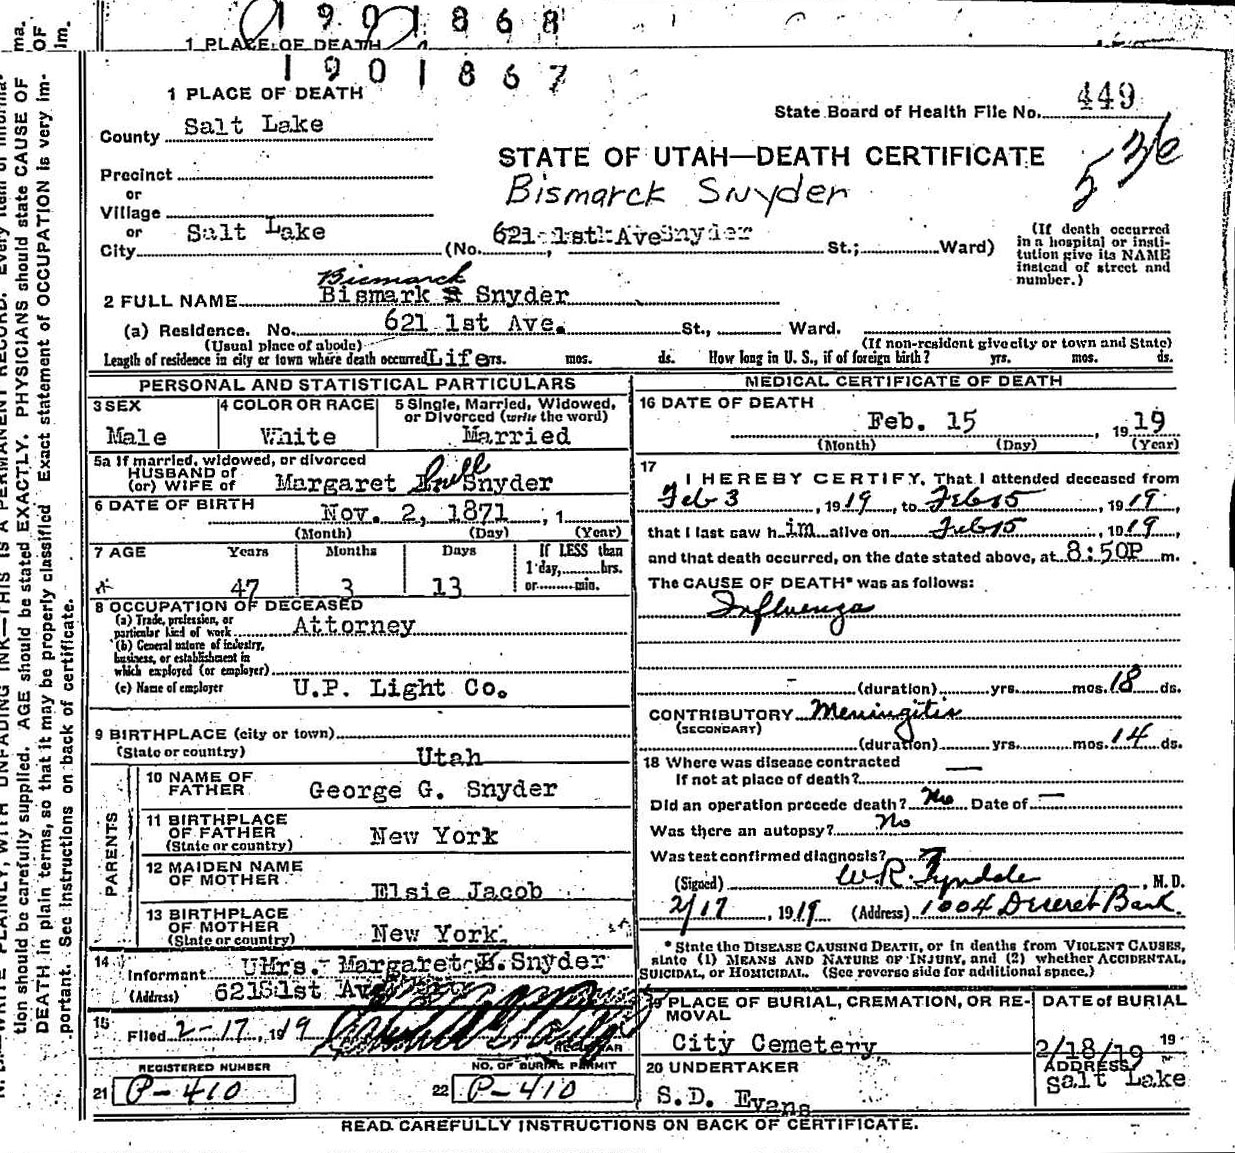 1901868
1 PLACE OF DEATH
1901867
1 PLACE OF DEATH
State Board of Health File No. 449
536
County Salt Lake
STATE OF UTAH—DEATH CERTIFICATE
Bismarck Snyder
Precinct
or
Village
or
City Salt Lake (No. 621 1st Ave Snyder St.; Ward)
(If death occurred in a hospital or insti-
tution give its NAME
instead of street and
number.)
Bismarck
2 FULL NAME Bismark Snyder
(a) Residence. No. 621 1st Ave. St., Ward.
(Usual place of abode) (If non-resident give city or town and State)
Length of residence in city or town where death occurred Life yrs. mos. ds. How long in U. S., if of foreign birth? yrs. mos. ds.
PERSONAL AND STATISTICAL PARTICULARS
3 SEX 4 COLOR OR RACE 5 Single, Married, Widowed,
or Divorced (write the word)
Male White Married
5a If married, widowed, or divorced
HUSBAND of
(or) WIFE of Margaret Snyder
6 DATE OF BIRTH Nov. 2, 1871, 1
(Month) (Day) (Year)
7 AGE Years Months Days If LESS than
1 day, hrs.
or min.
47 3 13
8 OCCUPATION OF DECEASED
(a) Trade, profession, or
particular kind of work Attorney
(b) General nature of industry,
business, or establishment in
which employed (or employer)
(c) Name of employer U.P. Light Co.
9 BIRTHPLACE (city or town)
(State or country) Utah
PARENTS
10 NAME OF
FATHER George G. Snyder
11 BIRTHPLACE
OF FATHER
(State or country) New York
12 MAIDEN NAME
OF MOTHER Elsie Jacob
13 BIRTHPLACE
OF MOTHER
(State or country) New York.
14
Informant Mrs. Margaret Snyder
(Address) 621 1st Ave
15
Filed 2-17, 1919
REGISTRAR
REGISTERED NUMBER NO. OF BURIAL PERMIT
21 P-410 22 P-410
MEDICAL CERTIFICATE OF DEATH
16 DATE OF DEATH
Feb. 15, 1919
(Month) (Day) (Year)
17
I HEREBY CERTIFY, That I attended deceased from
Feb 3, 1919, to Feb 15, 1919,
that I last saw him alive on Feb 15, 1919,
and that death occurred, on the date stated above, at 8:50P m.
The CAUSE OF DEATH* was as follows:
Influenza
(duration) yrs. mos. 18 ds.
CONTRIBUTORY Meningitis
(SECONDARY)
(duration) yrs. mos. 14 ds.
18 Where was disease contracted
If not at place of death? —
Did an operation precede death? No Date of —
Was there an autopsy? No
Was test confirmed diagnosis?
(Signed) W.R. Tyndale, M.D.
2/17, 1919 (Address) 1004 Deseret Bank.
* State the DISEASE CAUSING DEATH, or in deaths from VIOLENT CAUSES,
state (1) MEANS AND NATURE OF INJURY, and (2) whether ACCIDENTAL,
SUICIDAL, or HOMICIDAL. (See reverse side for additional space.)
19 PLACE OF BURIAL, CREMATION, OR RE-
MOVAL
City Cemetery
DATE of BURIAL
2/18/19 19
20 UNDERTAKER
S.D. Evans
ADDRESS
Salt Lake
READ CAREFULLY INSTRUCTIONS ON BACK OF CERTIFICATE.
tion should be carefully supplied. AGE should be stated EXACTLY. PHYSICIANS should state CAUSE OF
DEATH in plain terms, so that it may be properly classified. Exact statement of OCCUPATION is very im-
portant. See instructions on back of certificate.